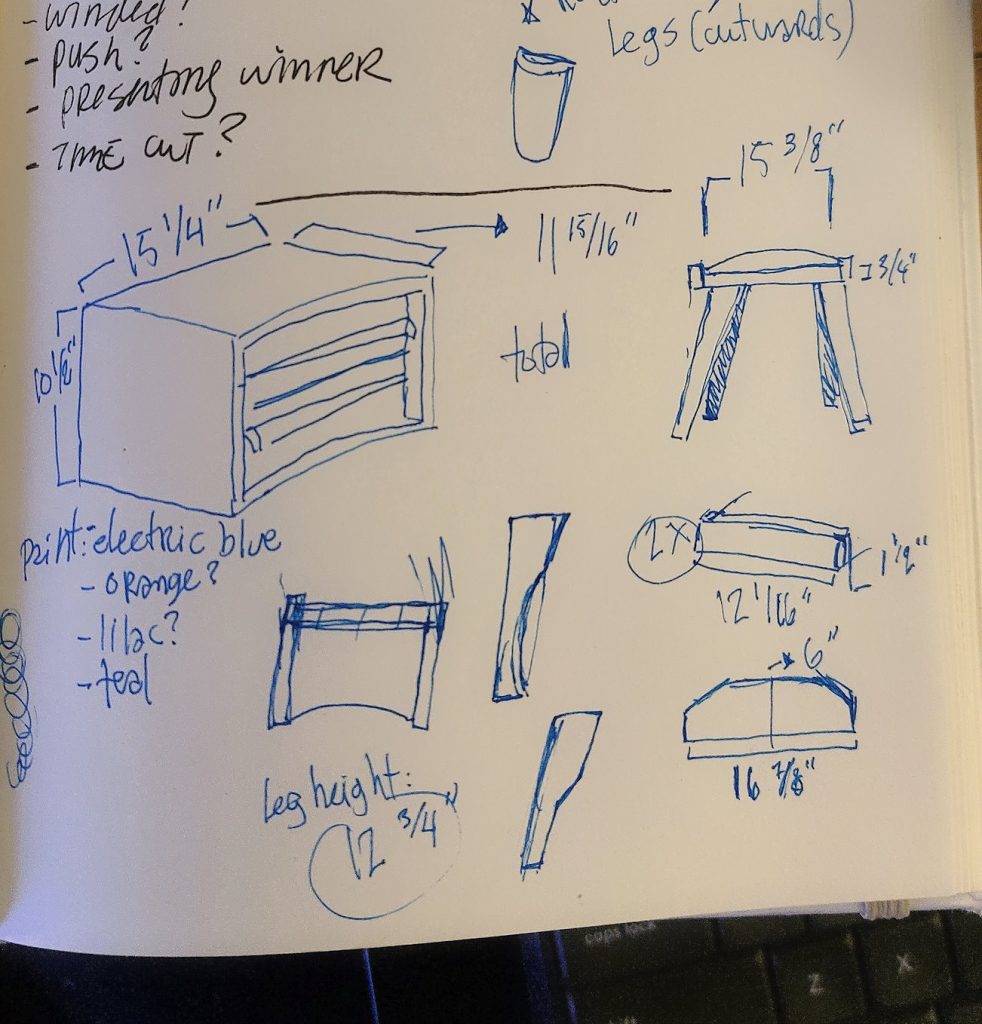 - winded?
- push?
- presenting winner
- TIME CUT?
Legs (outwards)
15 3/8"
15 1/4"
11 15/16"
3/4"
10 1/2"
total
paint: electric blue
- orange?
- lilac?
- teal
2x
1 1/2"
12 1/16"
6"
16 7/8"
Leg height:
12 3/4
caps lock
Z
X